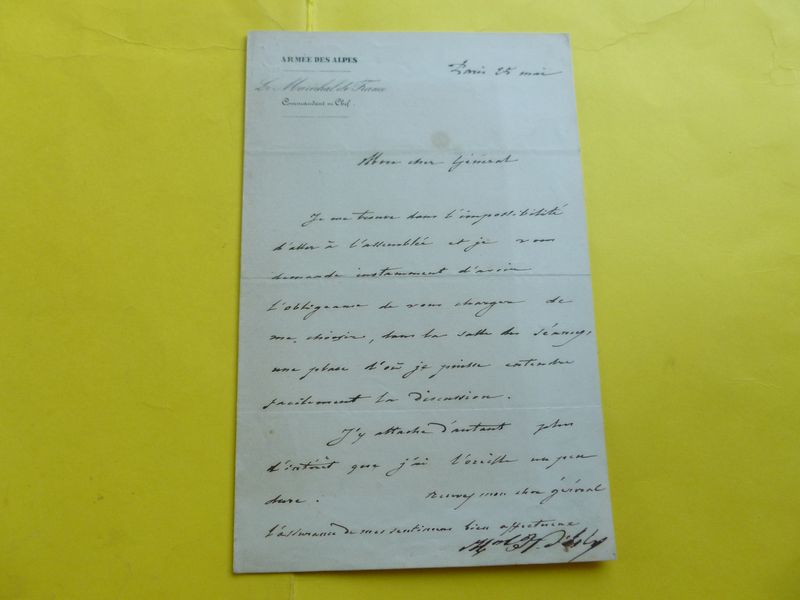 ARMÉE DES ALPES
Paris 25 mai
Le Maréchal de France
Commandant en Chef.
Mon cher Général
Je me trouve dans l'impossibilité
d'aller à l'assemblée et je vous
demande instamment d'avoir
l'obligeance de vous charger de
me choisir, dans la salle des séances,
une place d'où je puisse entendre
facilement la discussion.
J'y attache d'autant plus
d'intérêt que j'ai l'oreille un peu
dure. Recevez mon cher général
l'assurance de mes sentimens bien affectueux
Mal B. d'Isly